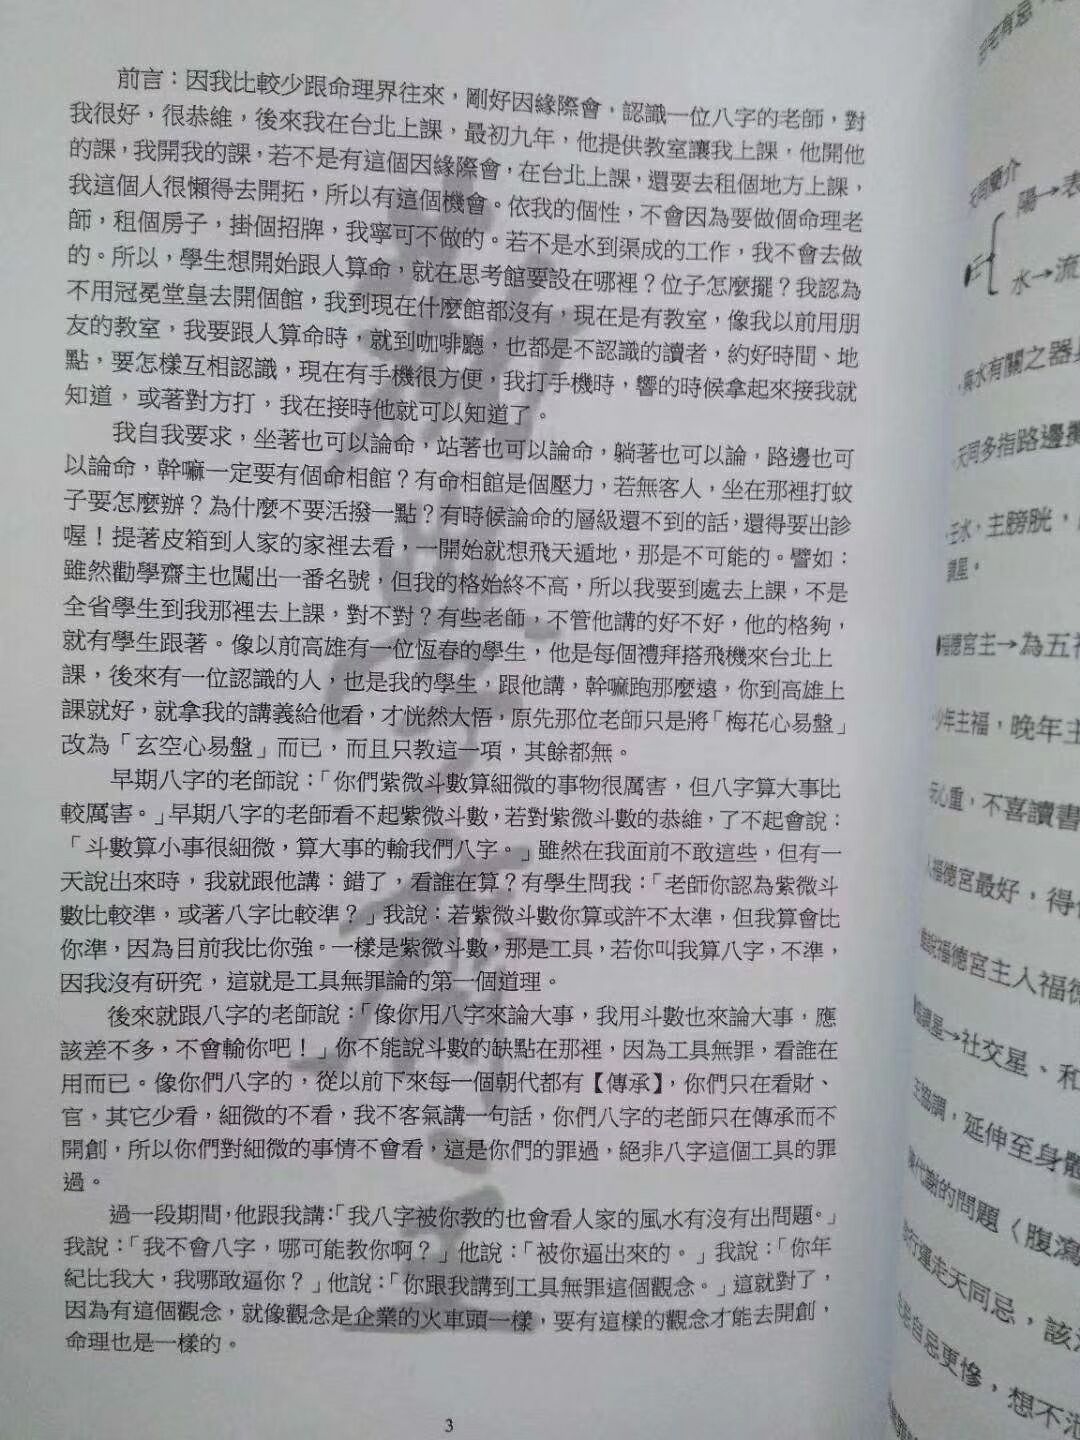 前言：因我比較少跟命理界往來，剛好因緣際會，認識一位八字的老師，對
我很好，很恭維，後來我在台北上課，最初九年，他提供教室讓我上課，他開他
的課，我開我的課，若不是有這個因緣際會，在台北上課，還要去租個地方上課，
我這個人很懶得去開拓，所以有這個機會。依我的個性，不會因為要做個命理老
師，租個房子，掛個招牌，我寧可不做的。若不是水到渠成的工作，我不會去做
的。所以，學生想開始跟人算命，就在思考館要設在哪裡？位子怎麼擺？我認為
不用冠冕堂皇去開個館，我到現在什麼館都沒有，現在是有教室，像我以前用朋
友的教室，我要跟人算命時，就到咖啡廳，也都是不認識的讀者，約好時間、地
點，要怎樣互相認識，現在有手機很方便，我打手機時，響的時候拿起來接我就
知道，或著對方打，我在接時他就可以知道了。
我自我要求，坐著也可以論命，站著也可以論命，躺著也可以論，路邊也可
以論命，幹嘛一定要有個命相館？有命相館是個壓力，若無客人，坐在那裡打蚊
子要怎麼辦？為什麼不要活撥一點？有時候論命的層級還不到的話，還得要出診
喔！提著皮箱到人家的家裡去看，一開始就想飛天遁地，那是不可能的。譬如：
雖然勸學齋主也闖出一番名號，但我的格始終不高，所以我要到處去上課，不是
全省學生到我那裡去上課，對不對？有些老師，不管他講的好不好，他的格夠，
就有學生跟著。像以前高雄有一位恆春的學生，他是每個禮拜搭飛機來台北上
課，後來有一位認識的人，也是我的學生，跟他講，幹嘛跑那麼遠，你到高雄上
課就好，就拿我的講義給他看，才恍然大悟，原先那位老師只是將「梅花心易盤」
改為「玄空心易盤」而已，而且只教這一項，其餘都無。
早期八字的老師說：「你們紫微斗數算細微的事物很厲害，但八字算大事比
較厲害。」早期八字的老師看不起紫微斗數，若對紫微斗數的恭維，了不起會說：
「斗數算小事很細微，算大事的輸我們八字。」雖然在我面前不敢這些，但有一
天說出來時，我就跟他講：錯了，看誰在算？有學生問我：「老師你認為紫微斗
數比較準，或著八字比較準？」我說：若紫微斗數你算或許不太準，但我算會比
你準，因為目前我比你強。一樣是紫微斗數，那是工具，若你叫我算八字，不準，
因我沒有研究，這就是工具無罪論的第一個道理。
後來就跟八字的老師說：「像你用八字來論大事，我用斗數也來論大事，應
該差不多，不會輸你吧！」你不能說斗數的缺點在那裡，因為工具無罪，看誰在
用而已。像你們八字的，從以前下來每一個朝代都有【傳承】，你們只在看財、
官，其它少看，細微的不看，我不客氣講一句話，你們八字的老師只在傳承而不
開創，所以你們對細微的事情不會看，這是你們的罪過，絕非八字這個工具的罪
過。
過一段期間，他跟我講：「我八字被你教的也會看人家的風水有沒有出問題。」
我說：「我不會八字，哪可能教你啊？」他說：「被你逼出來的。」我說：「你年
紀比我大，我哪敢逼你？」他說：「你跟我講到工具無罪這個觀念。」這就對了，
因為有這個觀念，就像觀念是企業的火車頭一樣，要有這樣的觀念才能去開創，
命理也是一樣的。
3
天同簡介
陽→表
水→流
，與水有關之器具
天同多指路邊攤
壬水，主膀胱，
福德宮主→為五福
少年主福，晚年主
玩心重，不喜讀書
人福德宮最好，得
福德宮主人福德
→社交星、和
主協調，延伸至身體
代謝的問題（腹瀉
行運走天同忌，該
自忌更慘，想不